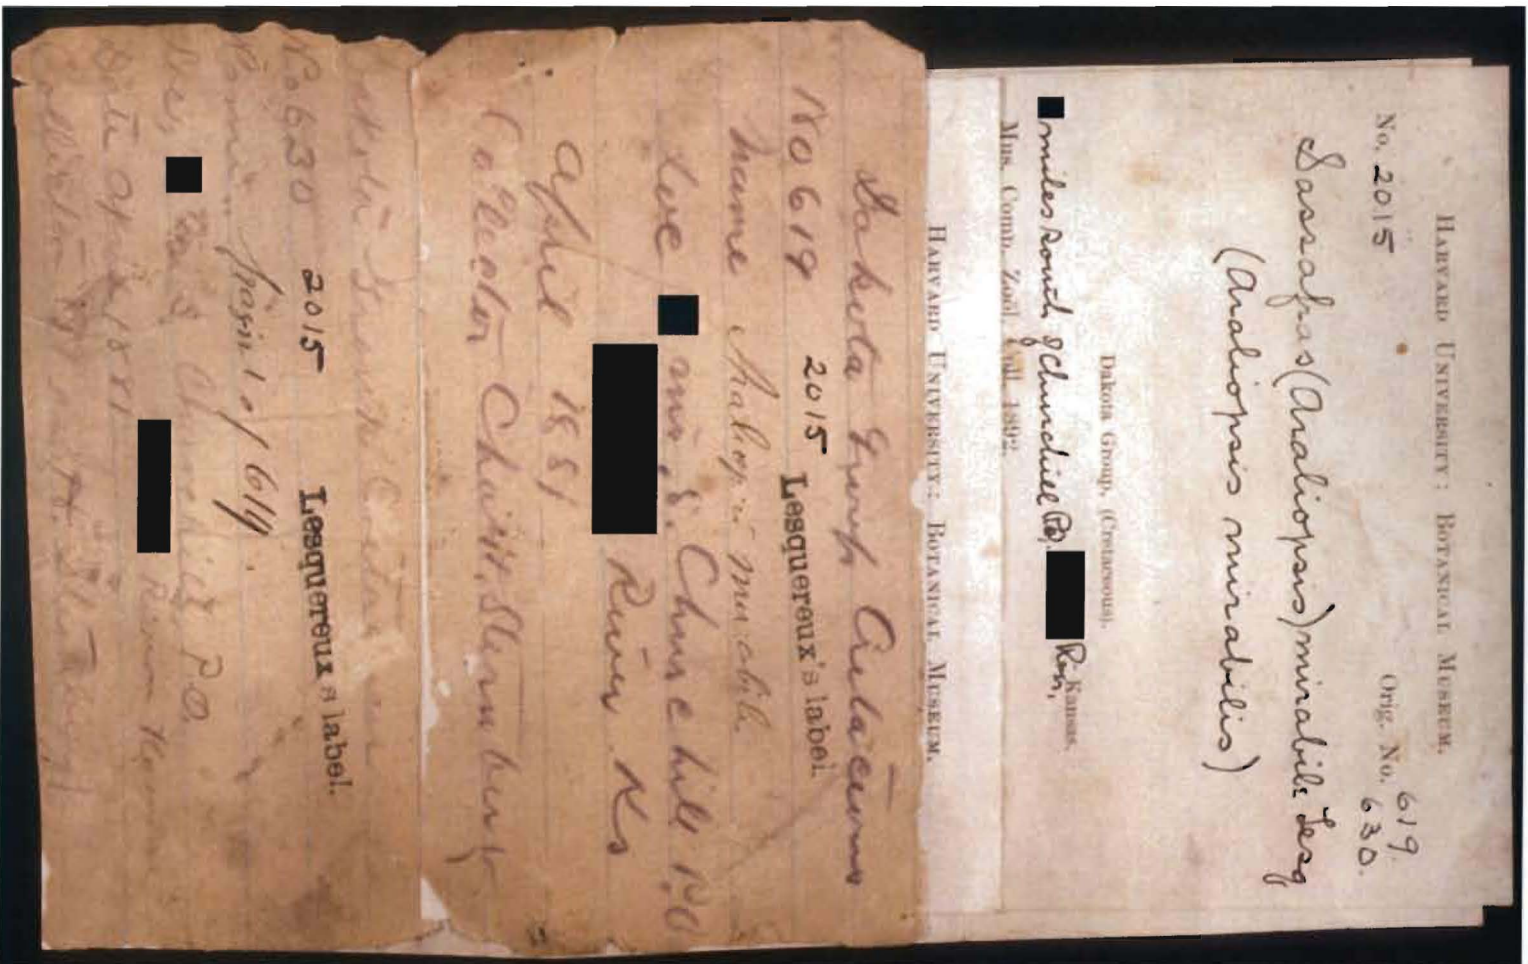 HARVARD UNIVERSITY: BOTANICAL MUSEUM.
No. 2015 Orig. No. 619.
630.
Sassafras (Araliopsis) mirabile Lesq
(Araliopsis mirabilis)
Dakota Group, (Cretaceous).
Kansas.
miles south of Churchill Po. River,
Mus. Comp. Zoöl. Coll. 1892.
HARVARD UNIVERSITY: BOTANICAL MUSEUM.
Dakota Group Cretaceous
No 619 2015 Lesquereux's label
Name Araliopsis mirabile
Loc mi. S. Churchill P.O
River Ks
April 1881
Collector Chas H. Sternberg
No 630 2015 Lesquereux's label.
1 of 619.
P.O.
Date April 1881